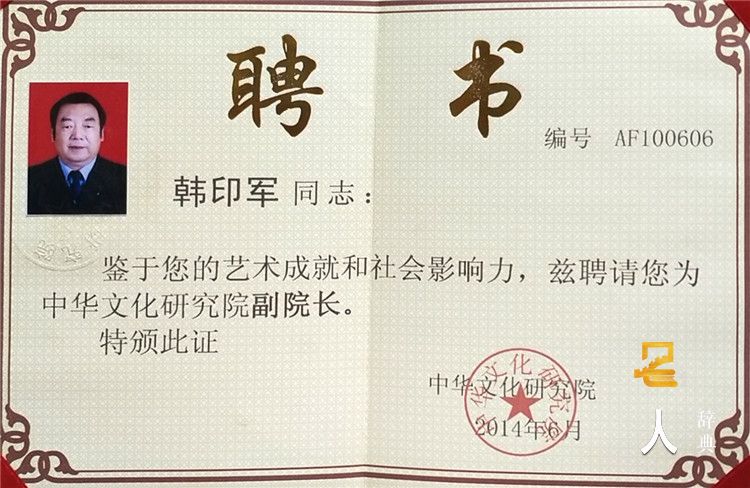 聘书
编号 AF100606
韩印军 同志：
鉴于您的艺术成就和社会影响力，兹聘请您为
中华文化研究院副院长。
特颁此证
中华文化研究院
2014年6月
中华文化研究院
名人
辞典